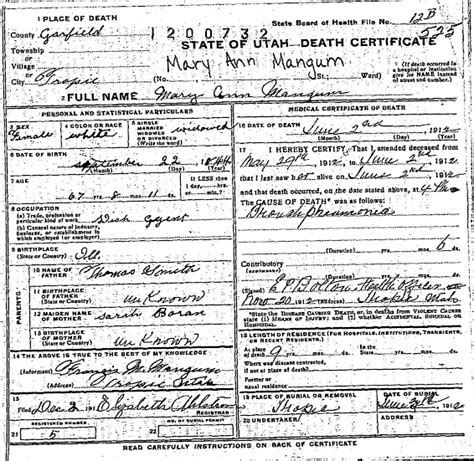 1 PLACE OF DEATH
State Board of Health File No. 12B
County Garfield
1200732
525
Township
or
Village
or
City Tropic
STATE OF UTAH DEATH CERTIFICATE
Mary Ann Mangum
(No. St.; Ward)
(If death occurred in a hospital or institution give its NAME instead of street and number.)
FULL NAME Mary Ann Mangum
PERSONAL AND STATISTICAL PARTICULARS
3 SEX
Female
4 COLOR OR RACE
White
5 SINGLE
MARRIED
WIDOWED
OR DIVORCED
Widowed
6 DATE OF BIRTH
September 22 1844
(Month) (Day) (Year)
7 AGE
67 yrs. 8 mos. 11 ds.
If LESS than
1 day, hrs.
or min.?
8 OCCUPATION
(a) Trade, profession or
particular kind of work
(b) General nature of industry,
business, or establishment in
which employed (or employer)
9 BIRTHPLACE
(State or Country) Ill.
PARENTS
10 NAME OF
FATHER
Thomas Smith
11 BIRTHPLACE
OF FATHER
(State or Country) unKnown
12 MAIDEN NAME
OF MOTHER
Sarah Boran
13 BIRTHPLACE
OF MOTHER
(State or Country) unKnown
14 THE ABOVE IS TRUE TO THE BEST OF MY KNOWLEDGE
(Informant) Francis M. Mangum
(Address) Tropic Utah
15
Filed Dec 2 1912 Elizabeth
REGISTRAR
REGISTERED NUMBER
21 5
BURIAL PERMIT NUMBER
22
MEDICAL CERTIFICATE OF DEATH
16 DATE OF DEATH
June 2nd 1912
(Month) (Day) (Year)
17 I HEREBY CERTIFY, That I attended deceased from
May 29th 1912, to June 2nd 1912
that I last saw h alive on June 2nd 1912
and that death occurred, on the date stated above, at 4 m.
The CAUSE OF DEATH* was as follows:
Bronchopneumonia
(Duration) yrs. mos. 6 ds.
Contributory
(Secondary)
(Duration) yrs. mos. ds.
(Signed) Health Officer
Nov 30 1912 (Address) Tropic Utah
*State the DISEASE CAUSING DEATH, or, in deaths from VIOLENT CAUSES
state (1) MEANS OF INJURY; and (2) whether ACCIDENTAL, SUICIDAL, or
HOMICIDAL.
18 LENGTH OF RESIDENCE (FOR HOSPITALS, INSTITUTIONS, TRANSIENTS,
OR RECENT RESIDENTS.)
19 PLACE OF BURIAL OR REMOVAL
Tropic
DATE OF BURIAL
June 1912
20 UNDERTAKER
ADDRESS
READ CAREFULLY INSTRUCTIONS ON BACK OF CERTIFICATE